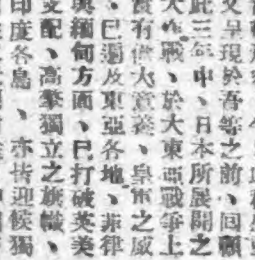 又呈現於吾等之前、回顧
此三年中、日本所展開之
大作戰、於大東亞戰爭上
有偉大意義、皇軍之威
、已遍及東亞各地、菲律
與緬甸方面、已打破英美
支配、高擎獨立之旗幟、
印度各島、亦皆迎候獨